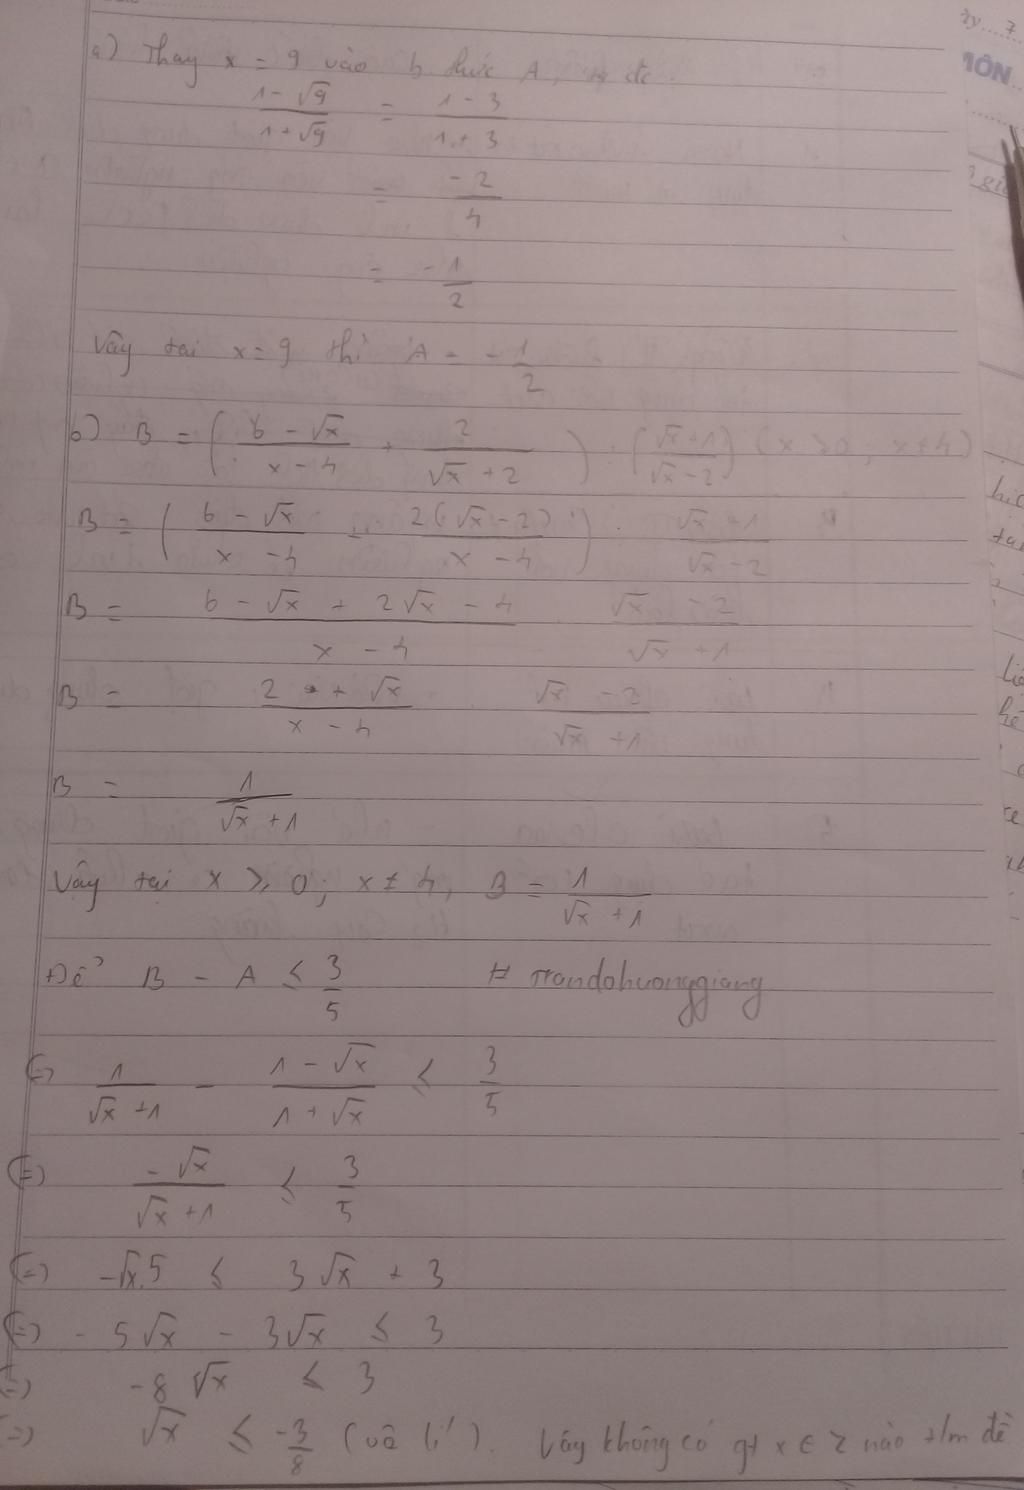 a) Thay x = 9 vào b thức A, ta đc.
\frac{1 - √9}{1 + √9} = \frac{1 - 3}{1 + 3}
= \frac{-2}{4}
= \frac{-1}{2}
Vậy tại x = 9 thì A = -\frac{1}{2}
b) B = (\frac{6 - √x}{x - 4} + \frac{2}{√x + 2}) : (\frac{√x + 1}{√x - 2}) (x ≥ 0; x ≠ 4)
B = (\frac{6 - √x}{x - 4} + \frac{2(√x - 2)}{x - 4}) : \frac{√x + 1}{√x - 2}
B = \frac{6 - √x + 2√x - 4}{x - 4} . \frac{√x - 2}{√x + 1}
B = \frac{2 + √x}{x - 4} . \frac{√x - 2}{√x + 1}
B = \frac{1}{√x + 1}
Vậy tại x ≥ 0; x ≠ 4, B = \frac{1}{√x + 1}
Để B - A ≤ \frac{3}{5} # trandohuonggiang
(=) \frac{1}{√x + 1} - \frac{1 - √x}{1 + √x} ≤ \frac{3}{5}
(=) \frac{-√x}{√x + 1} ≤ \frac{3}{5}
(=) -√x.5 ≤ 3√x + 3
(=) - 5√x - 3√x ≤ 3
(=) -8√x ≤ 3
(=) √x ≤ \frac{-3}{8} (vô lí). Vậy không có gt x ∈ Z nào t/m đề